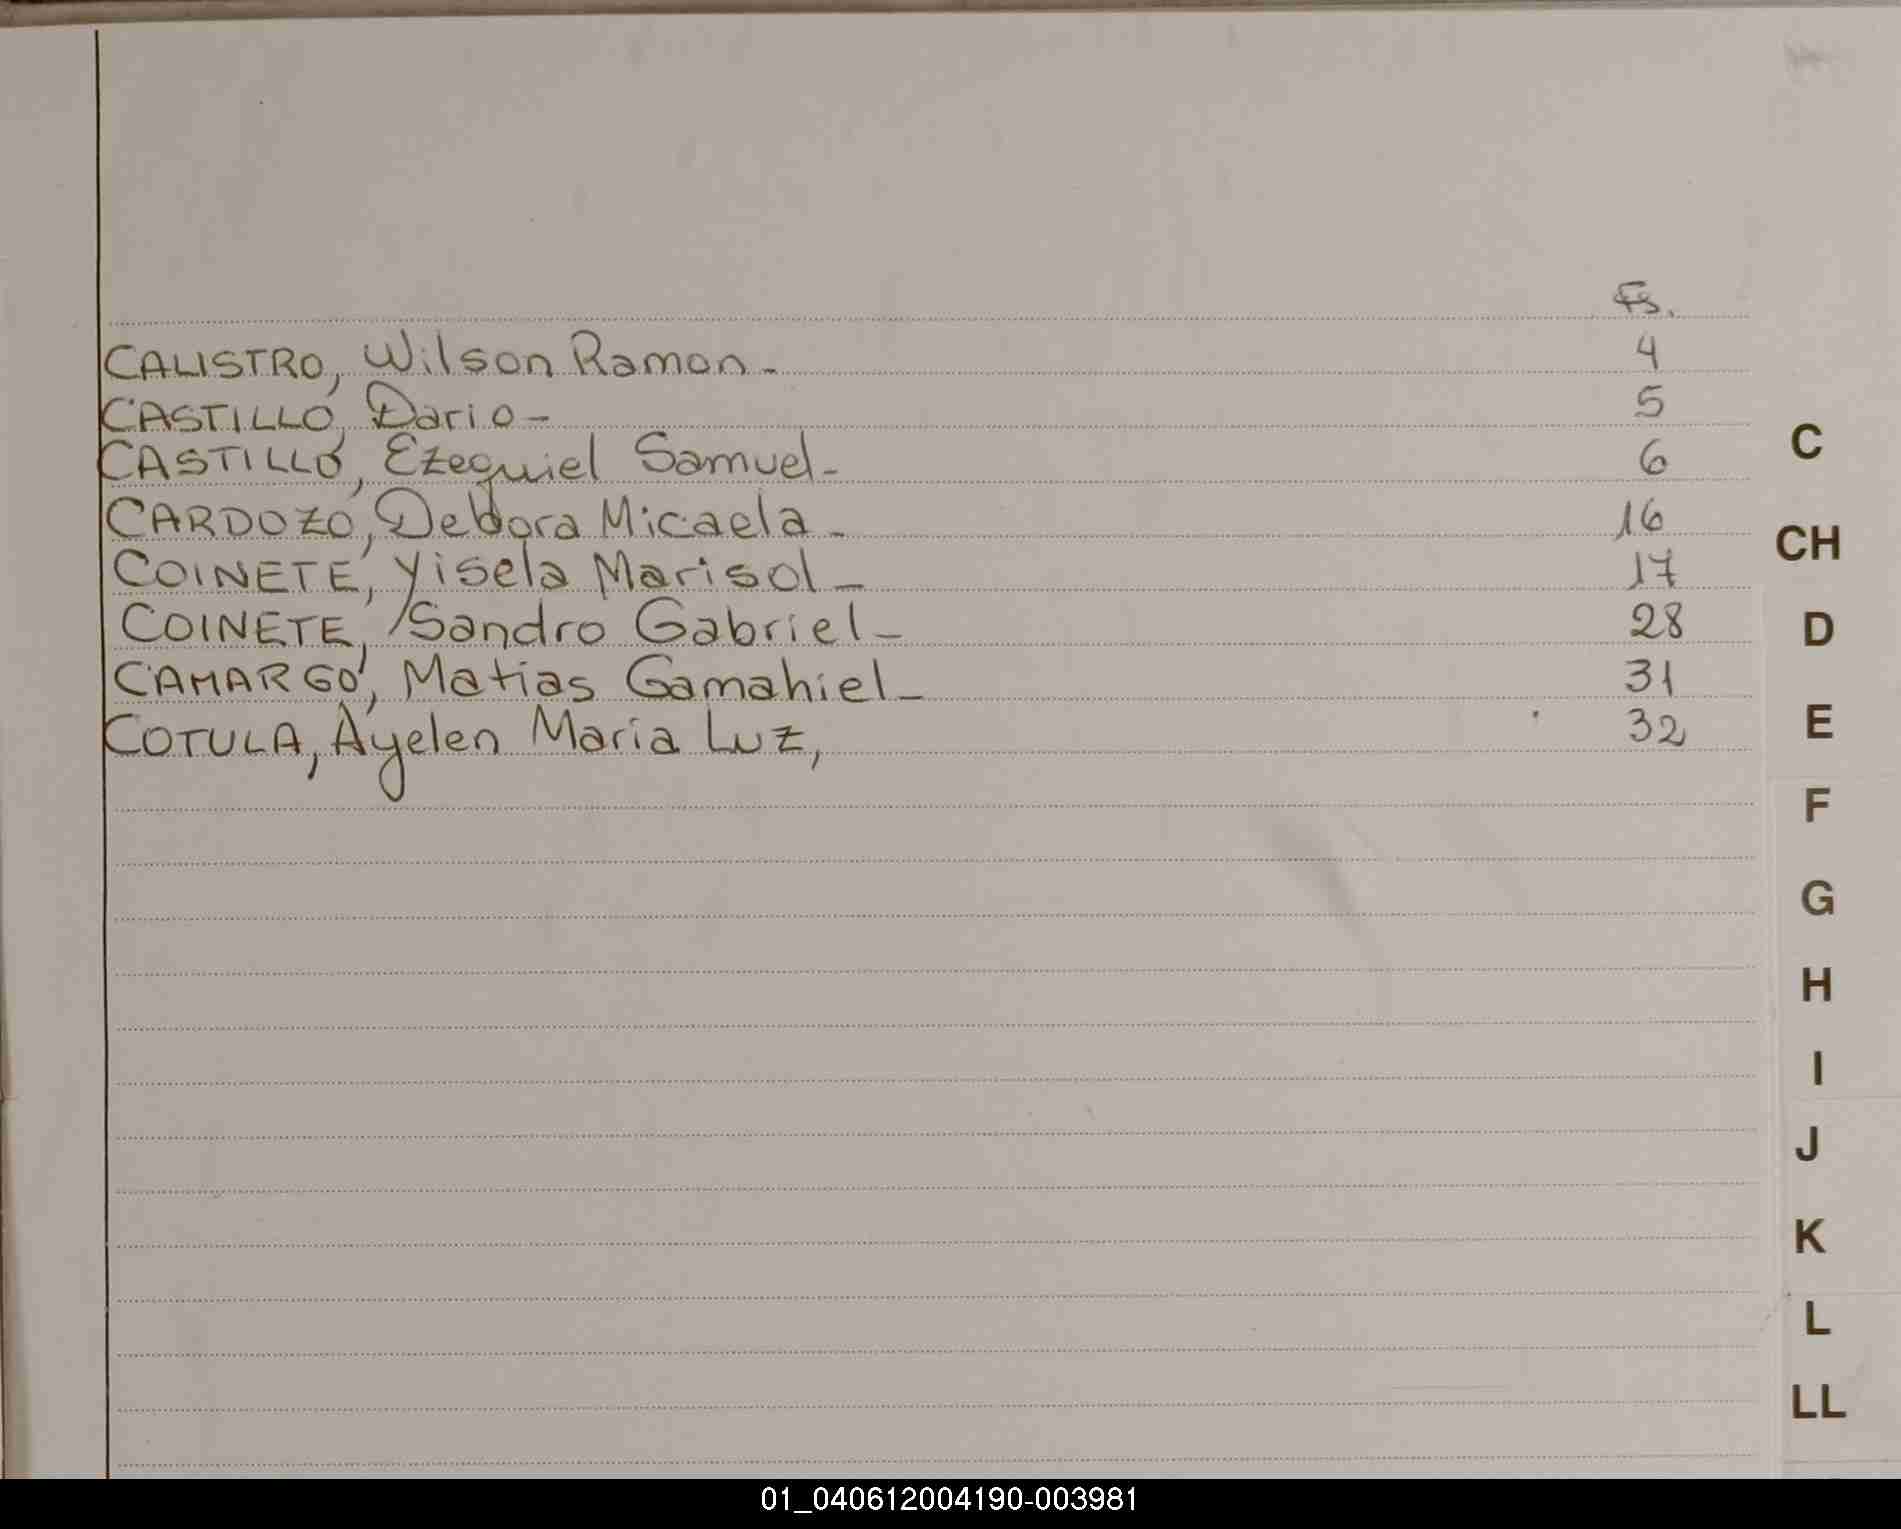 Fs.
CALISTRO, Wilson Ramon.- 4
CASTILLO, Dario- 5
CASTILLO, Ezequiel Samuel- 6
CARDOZO, Debora Micaela- 16
COINETE, Yisela Marisol- 17
COINETE, Sandro Gabriel- 28
CAMARGO, Matias Gamahiel- 31
COTULA, Ayelen Maria Luz, 32
C
CH
D
E
F
G
H
I
J
K
L
LL
01_040612004190-003981